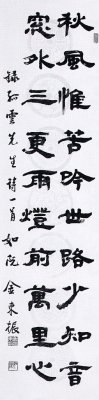 秋風惟苦吟世路少知音
窓外三更雨燈前萬里心
錄孤雲先生詩一首 如沅 金東振